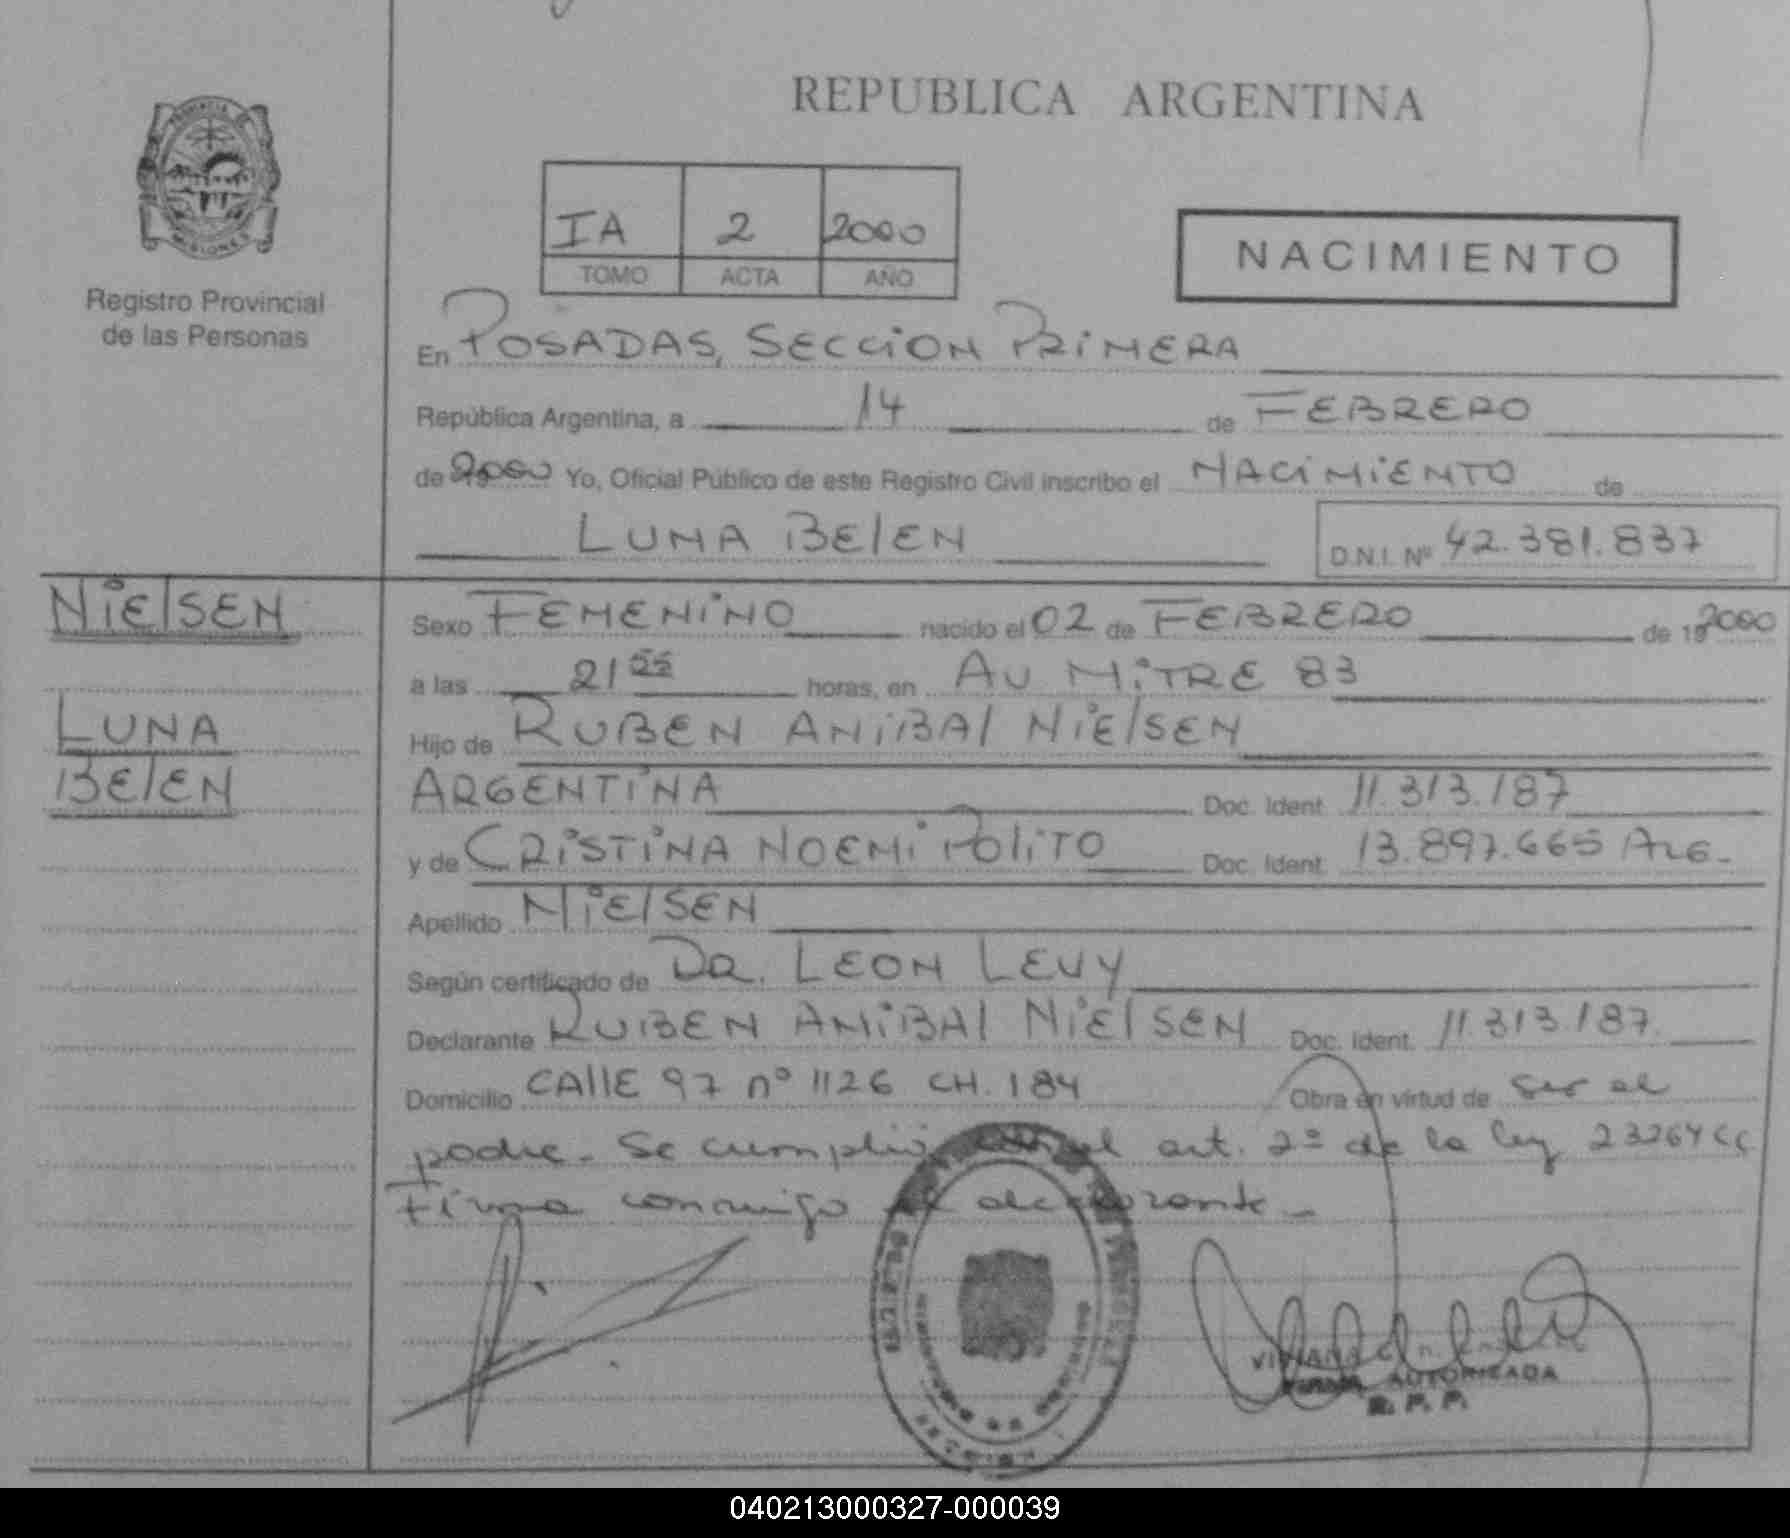 REPUBLICA ARGENTINA
PROVINCIA
MISIONES
Registro Provincial
de las Personas
IA 2 2000
TOMO ACTA AÑO
NACIMIENTO
En POSADAS, SECCION PRIMERA
República Argentina, a 14 de FEBRERO
de 2000 Yo, Oficial Público de este Registro Civil inscribo el NACIMIENTO de
LUNA BELEN D.N.I. Nº 42.381.837
NIELSEN
LUNA
BELEN
Sexo FEMENINO nacido el 02 de FEBRERO de 19 2000
a las 21 55 horas, en AV MITRE 83
Hijo de RUBEN ANIBAL NIELSEN
ARGENTINA Doc. Ident. 11.313.187
y de CRISTINA NOEMI POLITO Doc. Ident. 13.897.665 ARG.
Apellido NIELSEN
Según certificado de DR. LEON LEVY
Declarante RUBEN ANIBAL NIELSEN Doc. Ident. 11.313.187
Domicilio CALLE 97 nº 1126 CH. 184 Obra en virtud de ser el
padre. Se cumplió con el art. 2º de la ley 23264 CC
Firma conmigo el declarante.
AUTORIZADA
R. P. P.
040213000327-000039